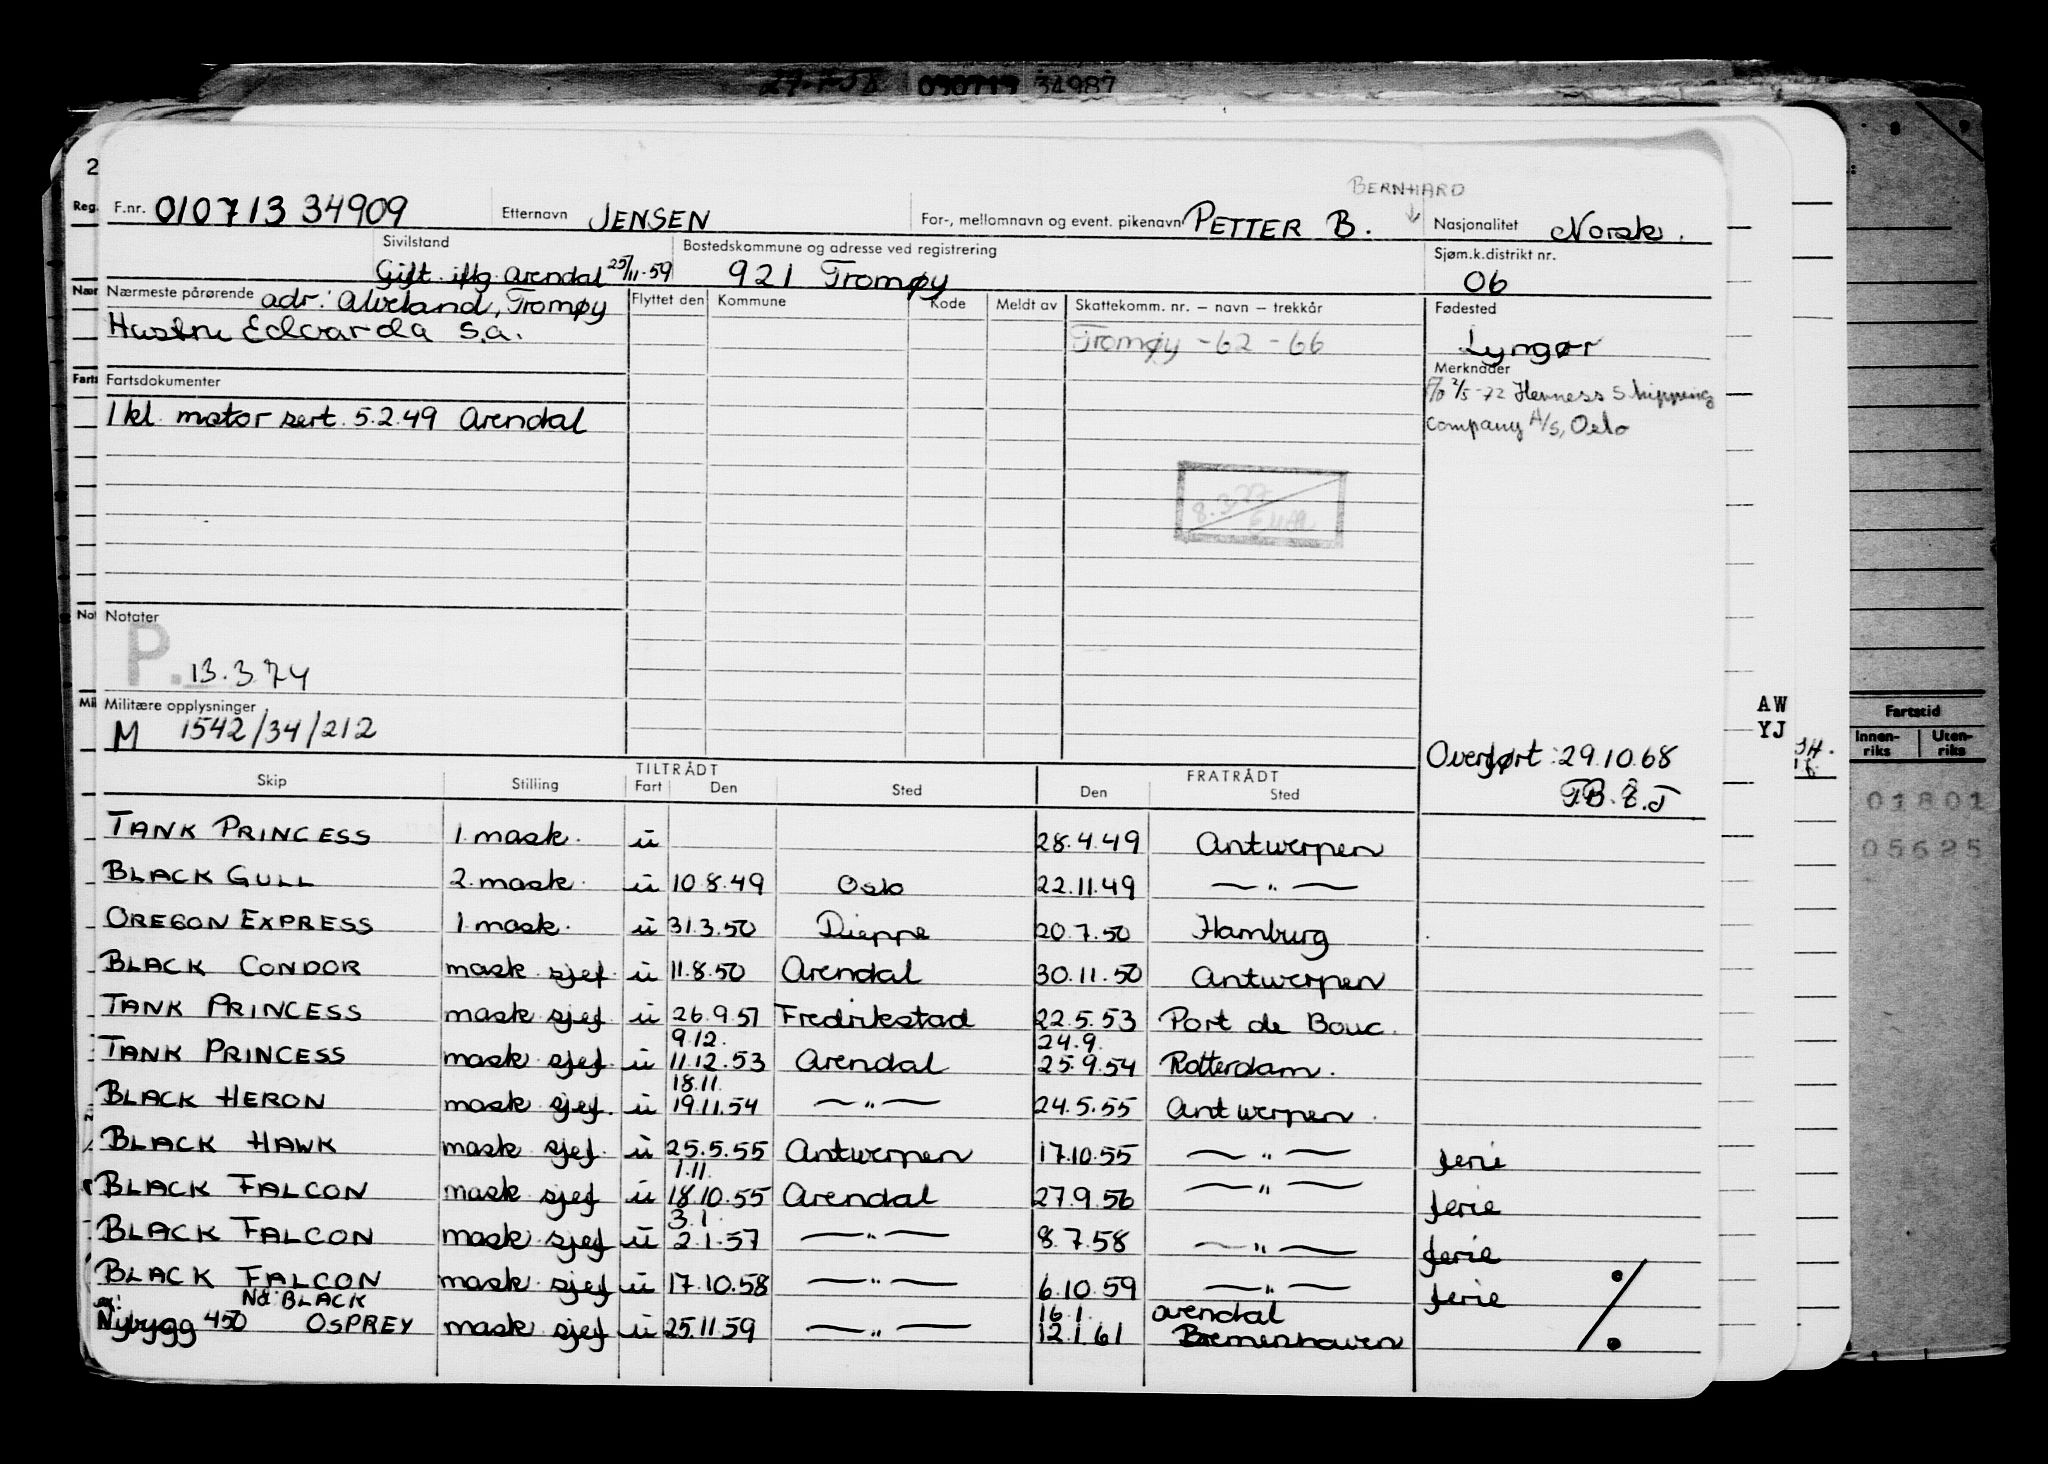 29.1.58 090713 34987
2
Reg. F.nr. 010713 34909 Etternavn JENSEN For-, mellomnavn og event. pikenavn PETTER B. BERNHARD Nasjonalitet Norsk.
Sivilstand Bostedskommune og adresse ved registrering Sjøm.k.distrikt nr.
Gift iflg. Arendal 25/11-59 921 Tromøy 06
Nær Nærmeste pårørende adr: Alveland, Tromøy Flyttet den Kommune Kode Meldt av Skattekomm. nr. – navn – trekkår Fødested
Hustru Edvarda s.a. Tromøy -62 -66 Lyngør
Farts Fartsdokumenter Merknader
1 kl. motor sert. 5.2.49 Arendal P/o 2/5-72 Henness Shipping
Company A/S, Oslo
8.3.72
Not Notater
P. 13.3.74
Mil Militære opplysninger
M 1542/34/212
AW
YJ
Fartstid
Innen-riks Uten-riks
01801
05625
Overført: 29.10.68
TILTRÅDT FRATRÅDT
Skip Stilling Fart Den Sted Den Sted
TANK PRINCESS 1. mask. u 28.4.49 Antwerpen
BLACK GULL 2. mask. u 10.8.49 Oslo 22.11.49 —〃—
OREGON EXPRESS 1. mask. u 31.3.50 Dieppe 20.7.50 Hamburg
BLACK CONDOR mask sjef u 11.8.50 Arendal 30.11.50 Antwerpen
TANK PRINCESS mask sjef u 26.9.51 Fredrikstad 22.5.53 Port de Bouc.
9.12. 24.9.
TANK PRINCESS mask sjef. u 11.12.53 Arendal 25.9.54 Rotterdam.
18.11.
BLACK HERON mask sjef. u 19.11.54 —〃— 24.5.55 Antwerpen.
BLACK HAWK mask sjef. u 25.5.55 Antwerpen 17.10.55 —〃— ferie
1.11.
BLACK FALCON mask sjef u 18.10.55 Arendal 27.9.56 —〃— ferie
3.1.
BLACK FALCON mask sjef u 2.1.57 —〃— 8.7.58 —〃— ferie
BLACK FALCON mask sjef u 17.10.58 —〃— 6.10.59 —〃— ferie
ex: Nå: BLACK 16.1. Arendal
Nybygg 450 OSPREY mask sjef u 25.11.59 —〃— 12.1.61 Bremerhaven